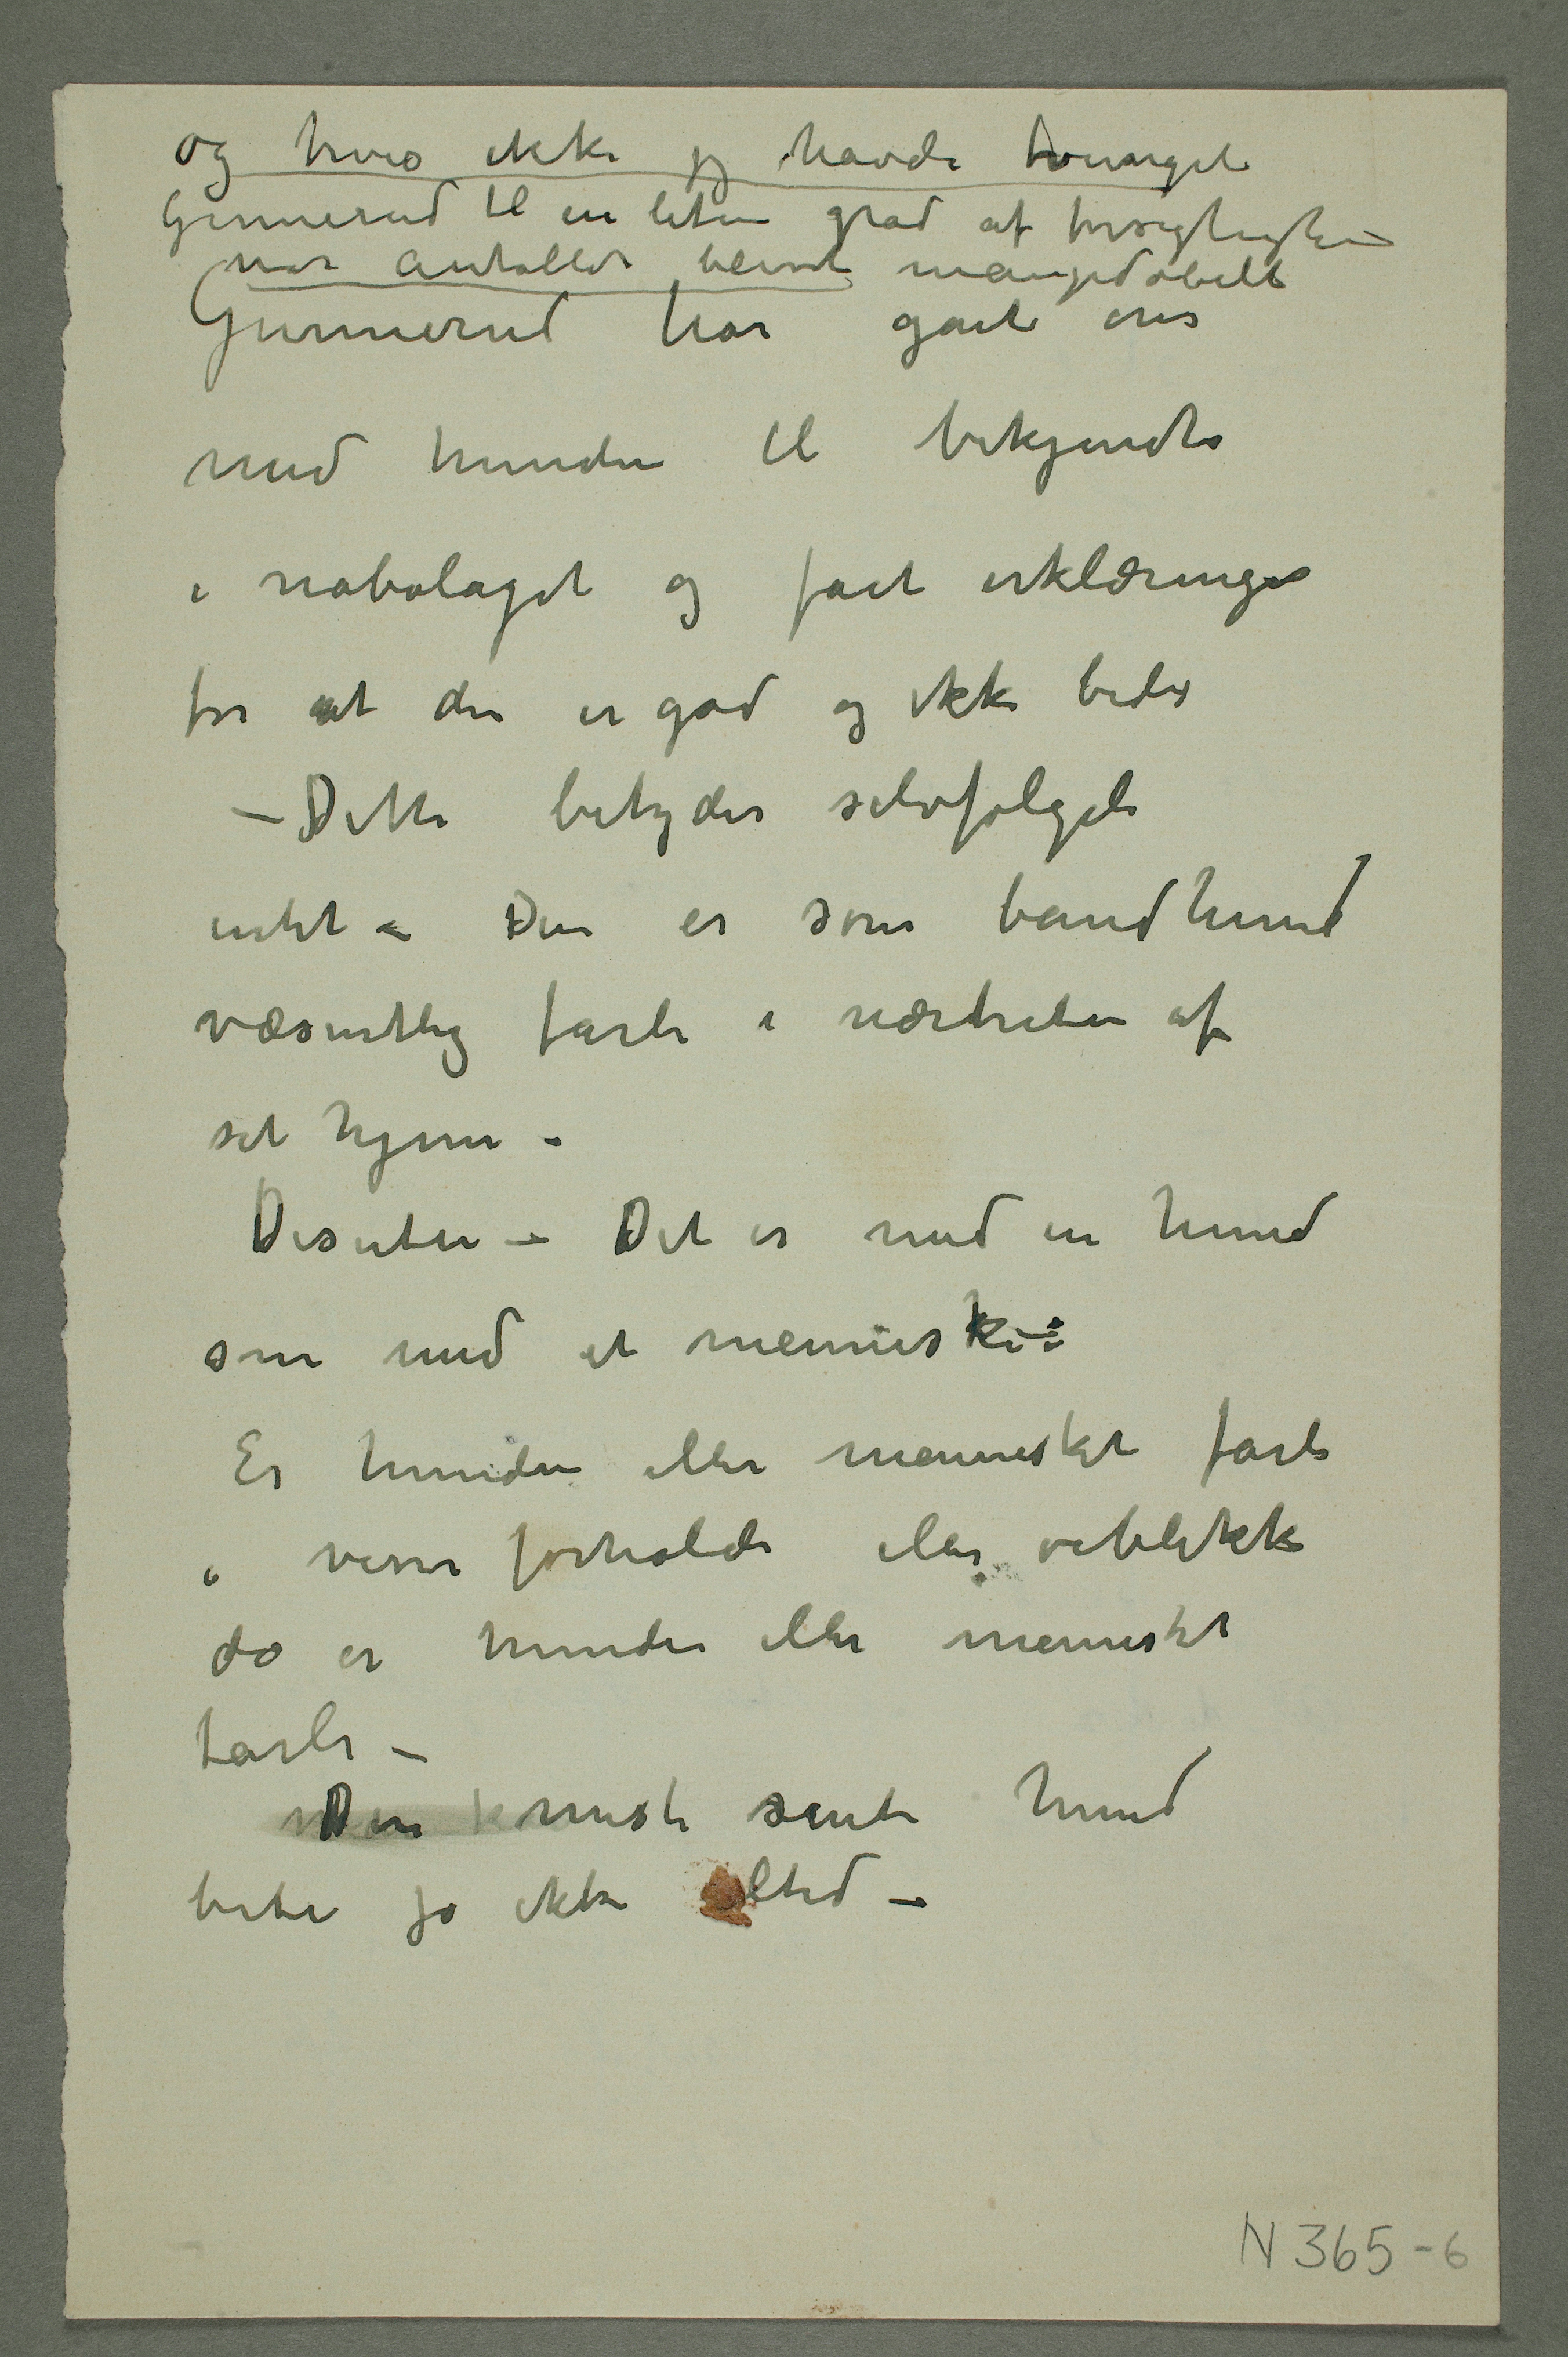 og hvis ikke jeg havde tvunget
Gunnerud til en liten grad af forsigtighe –
var antallet blevet mangedobelt
Gunnerud har gåt
med hunden til bekjendte
i nabolaget og fåt erklæringer
for at den er god og ikke bider
– Dette betyder selvfølgeli
intet – Den er som båndhund
væsentlig farli i nærheten af
sit hjem –
Desuten – Det er med en hund
som med et menneske:
Er hunden eller mennesket farli
i visse forholde eller øieblikke
da er hunden eller mennesket
farli –
Den meste sinte hund
biter jo ikke altid –
N 365-6